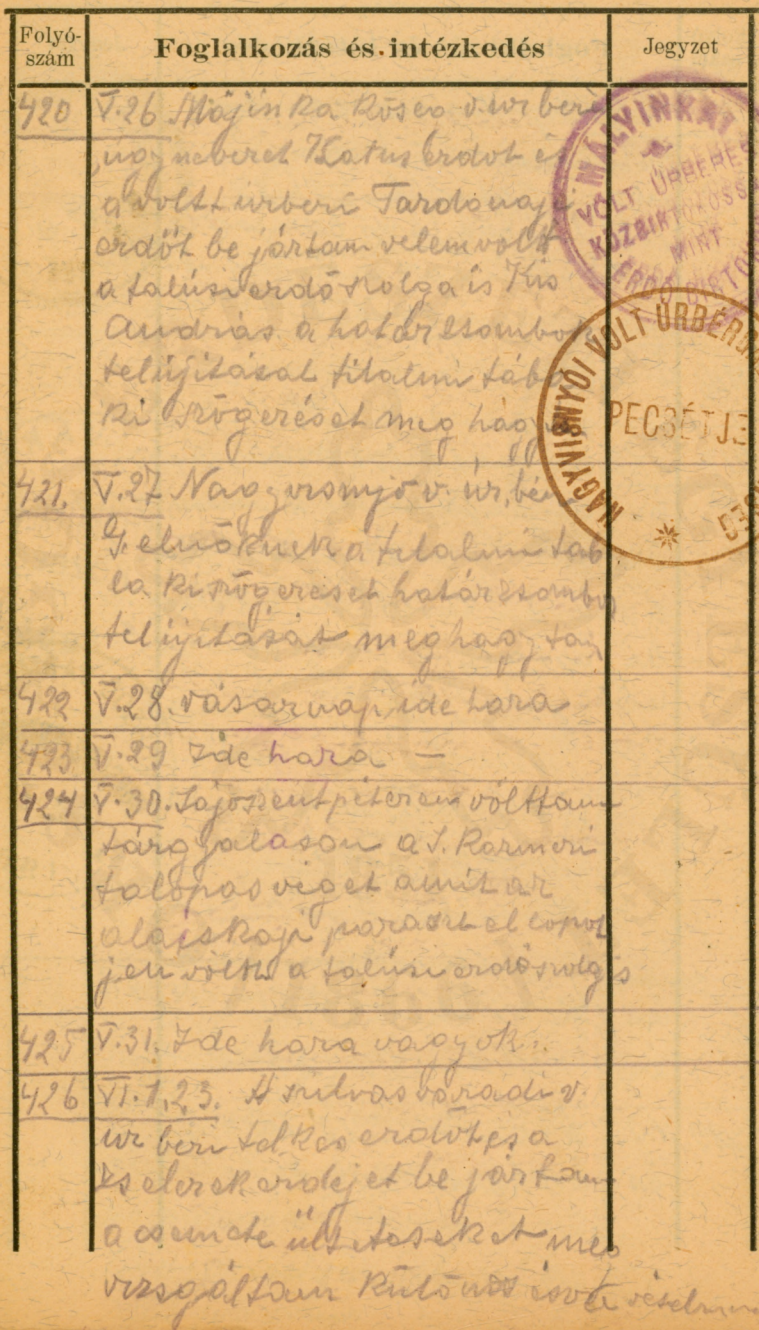 Folyó-
szám
Foglalkozás és intézkedés
Jegyzet
420 V.26 Májinka község v. ur beri
úgy neberet Katus erdot és
a voltt urberi Tardonaji
erdőt be jártam velem volt
a falusi erdő szolga is Kis
András a határ
felújitásal tilalmi tábl
ki szögerését meg hagy
MÁLYINKAI
VOLT ÚRBERES
KÖZBIRTOKOSSÁ
MINT
ERDŐ BIRTO
NAGYVISNYÓI VOLT ÚRBÉR
PECSÉTJE
421. V.27 Nagyvisnyó v. úr, bér
G. elnöknek a tilalmi táb
la ki szögereset határ
felújitását meghagytam
422 V.28. vásarnap ide hara
423 V.29 Ide hara —
424 V.30. Sajoszentpéteren völttam
tárgyalason a S.
falopas viget amit az
parast el lopot
jen völtt a falusi erdő szolg is
425 V.31. Ide hara vagyok.
426 VI.1,2,3. A szilvasváradi v.
ur beri telkes erdőt és a
zselerek erdejet be jártam
a csemete ültetéseket meg
vizsgáltam